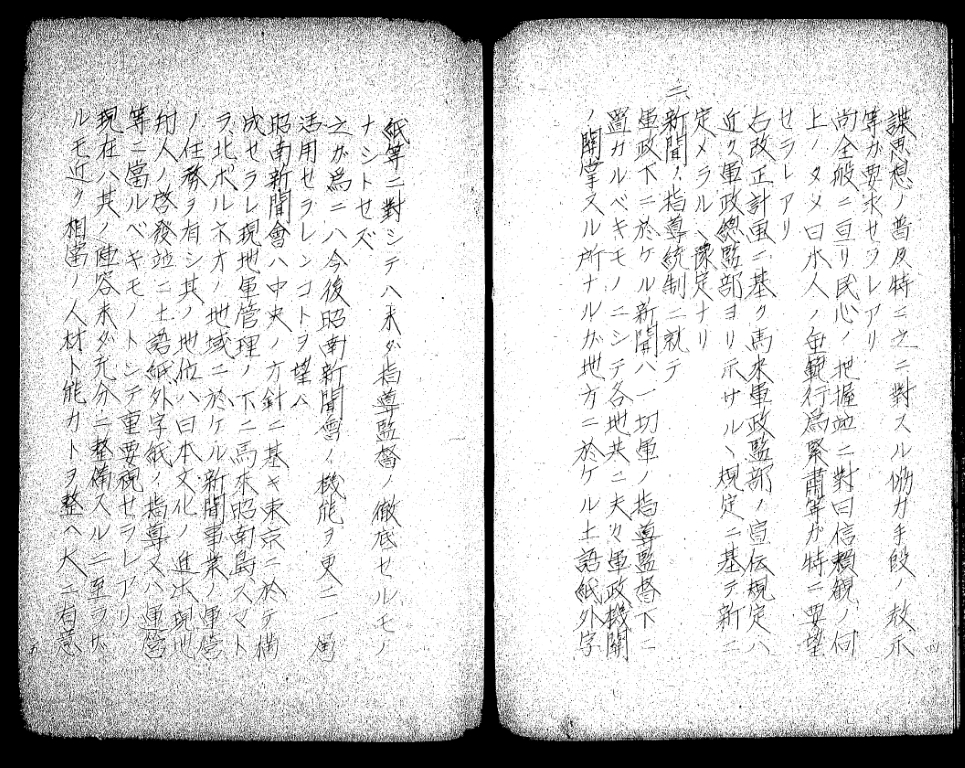 諜思想ノ普及特ニ之ニ對スル働力手段ノ教示
等ガ要求セラレアリ
尚全般ニ亘リ民心ノ把握竝ニ對日信賴觀ノ向
上ノタメ日本人ノ垂範行爲緊肅等ガ特ニ要望
セラレアリ
右改正計畫ニ基ク馬來軍政監部ノ宣伝規定ハ
近ク軍政總監部ヨリ示サルヽ規定ニ基テ新ニ
定メラルヽ豫定ナリ
二、新聞ノ指導統制ニ就テ
軍政下ニ於ケル新聞ハ一切軍ノ指導監督下ニ
置カルベキモノニシテ各地共ニ夫々軍政機關
ノ關掌スル所ナルガ地方ニ於ケル土語紙外字
四
紙等ニ對シテハ未ダ指導監督ノ徹底セルモノ
ナシトセズ
之ガ爲ニハ今後昭南新聞會ノ機能ヲ更ニ一層
活用セラレンコトヲ望ム
昭南新聞會ハ中央ノ方針ニ基キ東京ニ於テ構
成セラレ現地軍管理ノ下ニ馬來昭南島スマト
ラ、北ボルネオノ地域ニ於ケル新聞事業ノ運營
ノ任務ヲ有シ其ノ地位ハ日本文化ノ進出現地
邦人ノ啓發竝ニ土語紙外字紙ノ指導又ハ運營
等ニ當ルベキモノトシテ重要視セラレアリ
現在ハ其ノ陣容未ダ充分ニ整備スルニ至ラザ
ルモ近ク相當ノ人材ト能力トヲ整ヘ大ニ有意